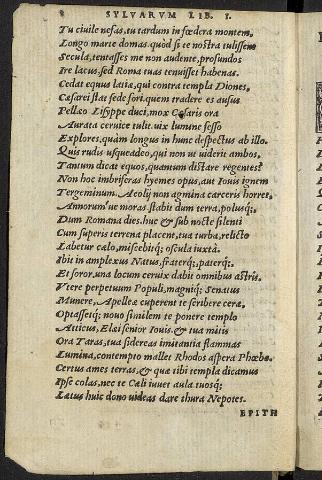 8 SYLVARVM LIB. I.
Tu ciuile nefas, tu tardum in fœdera montem,
Longo marte domas. quòd si te nostra tulissent
Secula, tentasses me non audente, profundos
Ire lacus, sed Roma tuas tenuisset habenas.
Cedat equus latiæ, qui contra templa Diones,
Cæsarei stat sede fori, quem tradere es ausus
Pellæo Lysippe duci, mox Cæsaris ora
Aurata ceruice tulit. uix lumine fesso
Explores, quàm longus in hunc despectus ab illo.
Quis rudis usqueadeo, qui non ut uiderit ambos,
Tantum dicat equos, quantum distare regentes?
Non hoc imbriferas hyemes opus, aut Iouis ignem
Tergeminum, Aeolij non agmina carceris horret,
Annorum'ue moras. stabit dum terra, polusq;,
Dum Romana dies. huc & sub nocte silenti
Cum superis terrena placent, tua turba, relicto
Labetur cælo, miscebitq; oscula iuxtà.
Ibit in amplexus Natus, fraterq;, paterq;,
Et soror, una locum ceruix dabit omnibus astris.
Vtere perpetuum Populi, magniq; Senatus
Munere, Apelleæ cuperent te scribere ceræ,
Optassetq; nouo similem te ponere templo
Atticus, Elei senior Iouis, & tua mitis
Ora Taras, tua sidereas imitantia flammas
Lumina, contempto mallet Rhodos aspera Phœbo.
Certus ames terras, & quæ tibi templa dicamus
Ipse colas, nec te Cæli iuuet aula, tuosq;
Lætus huic dono uideas dare thura Nepotes.
EPITH